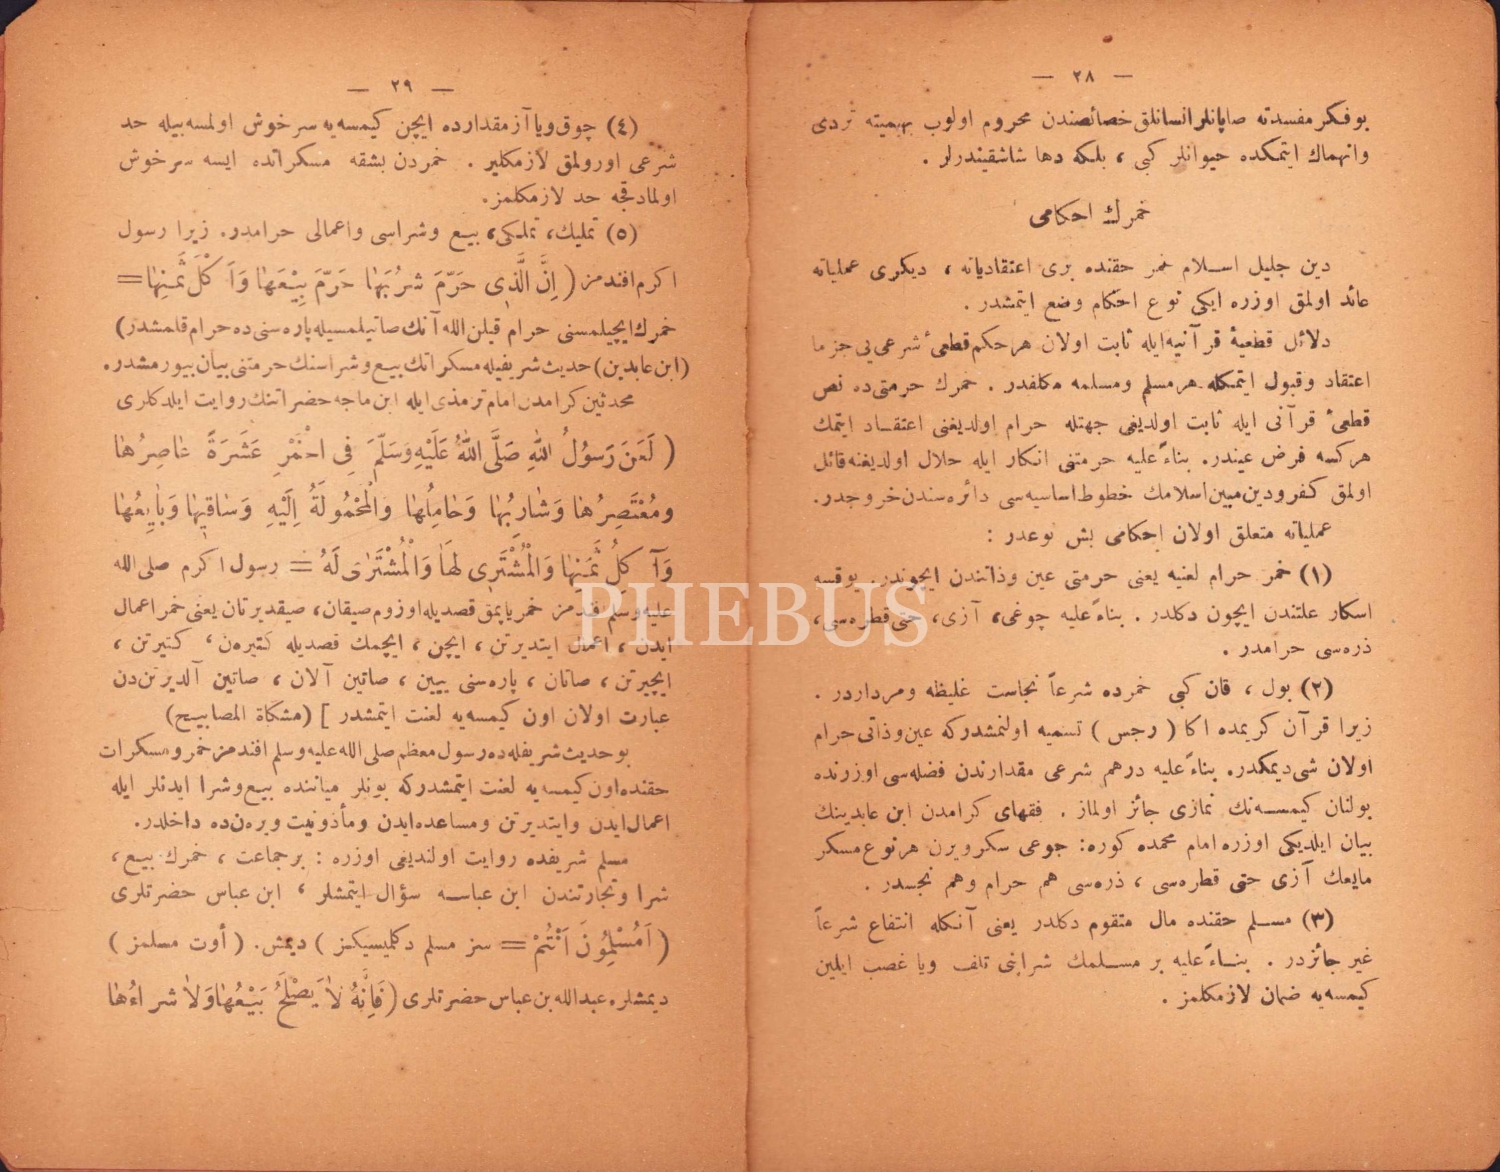 — ٢٨ —
بوفكر مفسدته صاپانلر انسانلق خصائصندن محروم اولوب بهيميته تردى
وانهماك ايتمكده حيوانلر كبى ، بلكه دها شاشقيندرلر .
خمرك احكامى
دين جليل اسلام خمر حقنده برى اعتقادياته ، ديكرى عملياته
عائد اولمق اوزره ايكى نوع احكام وضع ايتمشدر .
دلائل قطعيهٔ قرآنيه‌ايله ثابت اولان هرحكم قطعىٔ شرعى‌يى جزما
اعتقاد وقبول ايتمكله هرمسلم ومسلمه مكلفدر . خمرك حرمتى‌ده نص
قطعىٔ قرآنى ايله ثابت اولديغى جهتله حرام اولديغنى اعتقاد ايتمك
هركسه فرض عيندر. بناءً عليه حرمتنى انكار ايله حلال اولديغنه قائل
اولمق كفرودين مبين اسلامك خطوط اساسيه‌سى دائره‌سندن خروجدر.
عملياته متعلق اولان احكامى بش نوعدر :
(١) خمر حرام لعنيه يعنى حرمتى عين وذاتندن ايچوندر. يوقسه
اسكار علتندن ايچون دكلدر . بناءً عليه چوغى، آزى، حتى قطره‌سى،
ذره‌سى حرامدر .
(٢) بول ، قان كبى خمرده شرعاً نجاست غليظه ومرداردر .
زيرا قرآن كريمده اكا ( رجس ) تسميه اولنمشدركه عين وذاتى حرام
اولان شى ديمكدر. بناءً عليه درهم شرعى مقدارندن فضله‌سى اوزرنده
بولنان كيمسه‌نك نمازى جائز اولماز . فقهاى كرامدن ابن عابدينك
بيان ايلديكى اوزره امام محمده كوره: جوعى سكر ويرن هرنوع مسكر
مايعك آزى حتى قطره‌سى ، ذره‌سى هم حرام وهم نجسدر .
(٣) مسلم حقنده مال متقوم دكلدر يعنى آنكله انتفاع شرعاً
غير جائزدر . بناءً عليه بر مسلمك شرابنى تلف ويا غصب ايلين
كيمسه‌يه ضمان لازمكلمز .
— ٢٩ —
(٤) چوق ويا آز مقدارده ايچن كيمسه‌يه سرخوش اولمسه‌بيله حد
شرعى اورولمق لازمكلير . خمردن بشقه مسكراتده ايسه سرخوش
اولمادقجه حد لازمكلمز.
(٥) تمليك، تملكى، بيع وشراسى واعمالى حرامدر. زيرا رسول
اكرم افندمز ( اِنَّ الَّذِى حَرَّمَ شُرْبَهَا حَرَّمَ بَيْعَهَا وَآكْلَ ثَمَنِهَا =
خمرك ايچيلمسنى حرام قيلن الله آنك صاتيلمسيله پاره‌سنى ده حرام قلمشدر)
(ابن عابدين) حديث شريفيله مسكراتك بيع وشراسنك حرمتنى بيان بيورمشدر.
محدثين كرامدن امام ترمذى ايله ابن ماجه حضراتنك روايت ايلدكلرى
( لَعَنَ رَسُولُ اللهِ صَلَّى اللهُ عَلَيْهِ وَسَلَّمَ فِى الْخَمْرِ عَشَرَةً عَاصِرُهَا
وَمُعْتَصِرُهَا وَشَارِبُهَا وَحَامِلُهَا وَالْمَحْمُولَةُ اِلَيْهِ وَسَاقِيهَا وَبَايِعُهَا
وَآكِلُ ثَمَنِهَا وَالْمُشْتَرِى لَهَا وَالْمُشْتَرٰى لَهُ = رسول اكرم صلى الله
عليه وسلم افندمز خمر ياپمق قصديله اوزوم صيقان، صيقديرتان يعنى خمر اعمال
ايدن ، اعمال ايتديرتن ، ايچن ، ايچمك قصديله كتيره‌ن ، كتيرتن ،
ايچيرتن ، صاتان ، پاره‌سنى ييين ، صاتين آلان ، صاتين آلديرتن‌دن
عبارت اولان اون كيمسه‌يه لعنت ايتمشدر ] (مشكاة المصابيح)
بوحديث شريفله‌ده رسول معظم صلى الله عليه وسلم افندمز خمر ومسكرات
حقنده اون كيمسه‌يه لعنت ايتمشدركه بونلر مياننده بيع وشرا ايدنلر ايله
اعمال ايدن وايتديرتن ومساعده ايدن ومأذونيت ويره‌ن‌ده داخلدر.
مسلم شريفده روايت اولنديغى اوزره : برجماعت ، خمرك بيع ،
شرا وتجارتندن ابن عباسه سؤال ايتمشلر ، ابن عباس حضرتلرى
( اَمُسْلِمُونَ اَنْتُمْ = سز مسلم دكليسيكز ) ديمش. ( أوت مسلمز )
ديمشلر. عبدالله بن عباس حضرتلرى ( فَاِنَّهُ لَا يَصْلَحُ بَيْعُهَا وَلَا شراءُهَا
PHEBUS